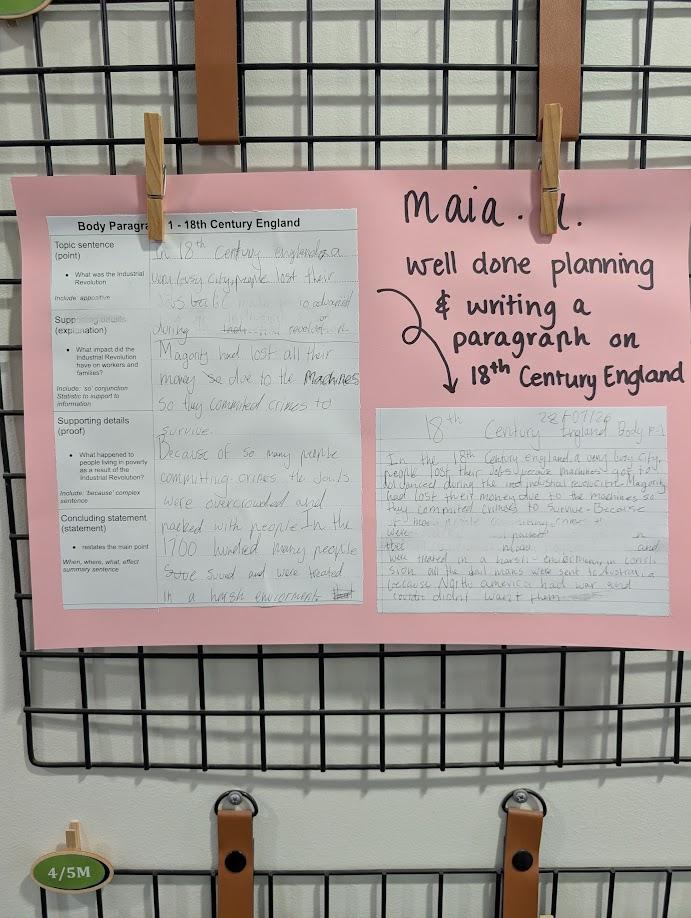 Body Paragra 1 - 18th Century England
Topic sentence
(point)
• What was the Industrial
Revolution
Include: appositive
In 18th Century england, a
very busy city, people lost their
Jobs to advanced
during revolution
Supporting details
(explanation)
• What impact did the
Industrial Revolution
have on workers and
families?
Include: 'so' conjunction
Statistic to support to
information
Magority had lost all their
money so due to the Machines
So they committed crimes to
survive.
Supporting details
(proof)
• What happened to
people living in poverty
as a result of the
Industrial Revolution?
Include: 'because' complex
sentence
Because of so many people
committing crimes the Jails
were overcrowded and
packed with people. In the
Concluding statement
(statement)
• restates the main point
When, where, what, effect
summary sentence
1700 hundred many people
and were treated
in a harsh enviorment
Maia.
well done planning
& writing a
paragraph on
18th Century England
18th Century England Body P-1
In the 18th Century England, a very busy city,
people lost their Jobs because machines got to
advanced during the industrial revolution. Magority
had lost their money due to the machines so
they commited crimes to survive. Because
many people
were packed
and
were treated in a harsh enviorment in
all the were sent to Australia
because North america had war and
didn't want them
4/5M